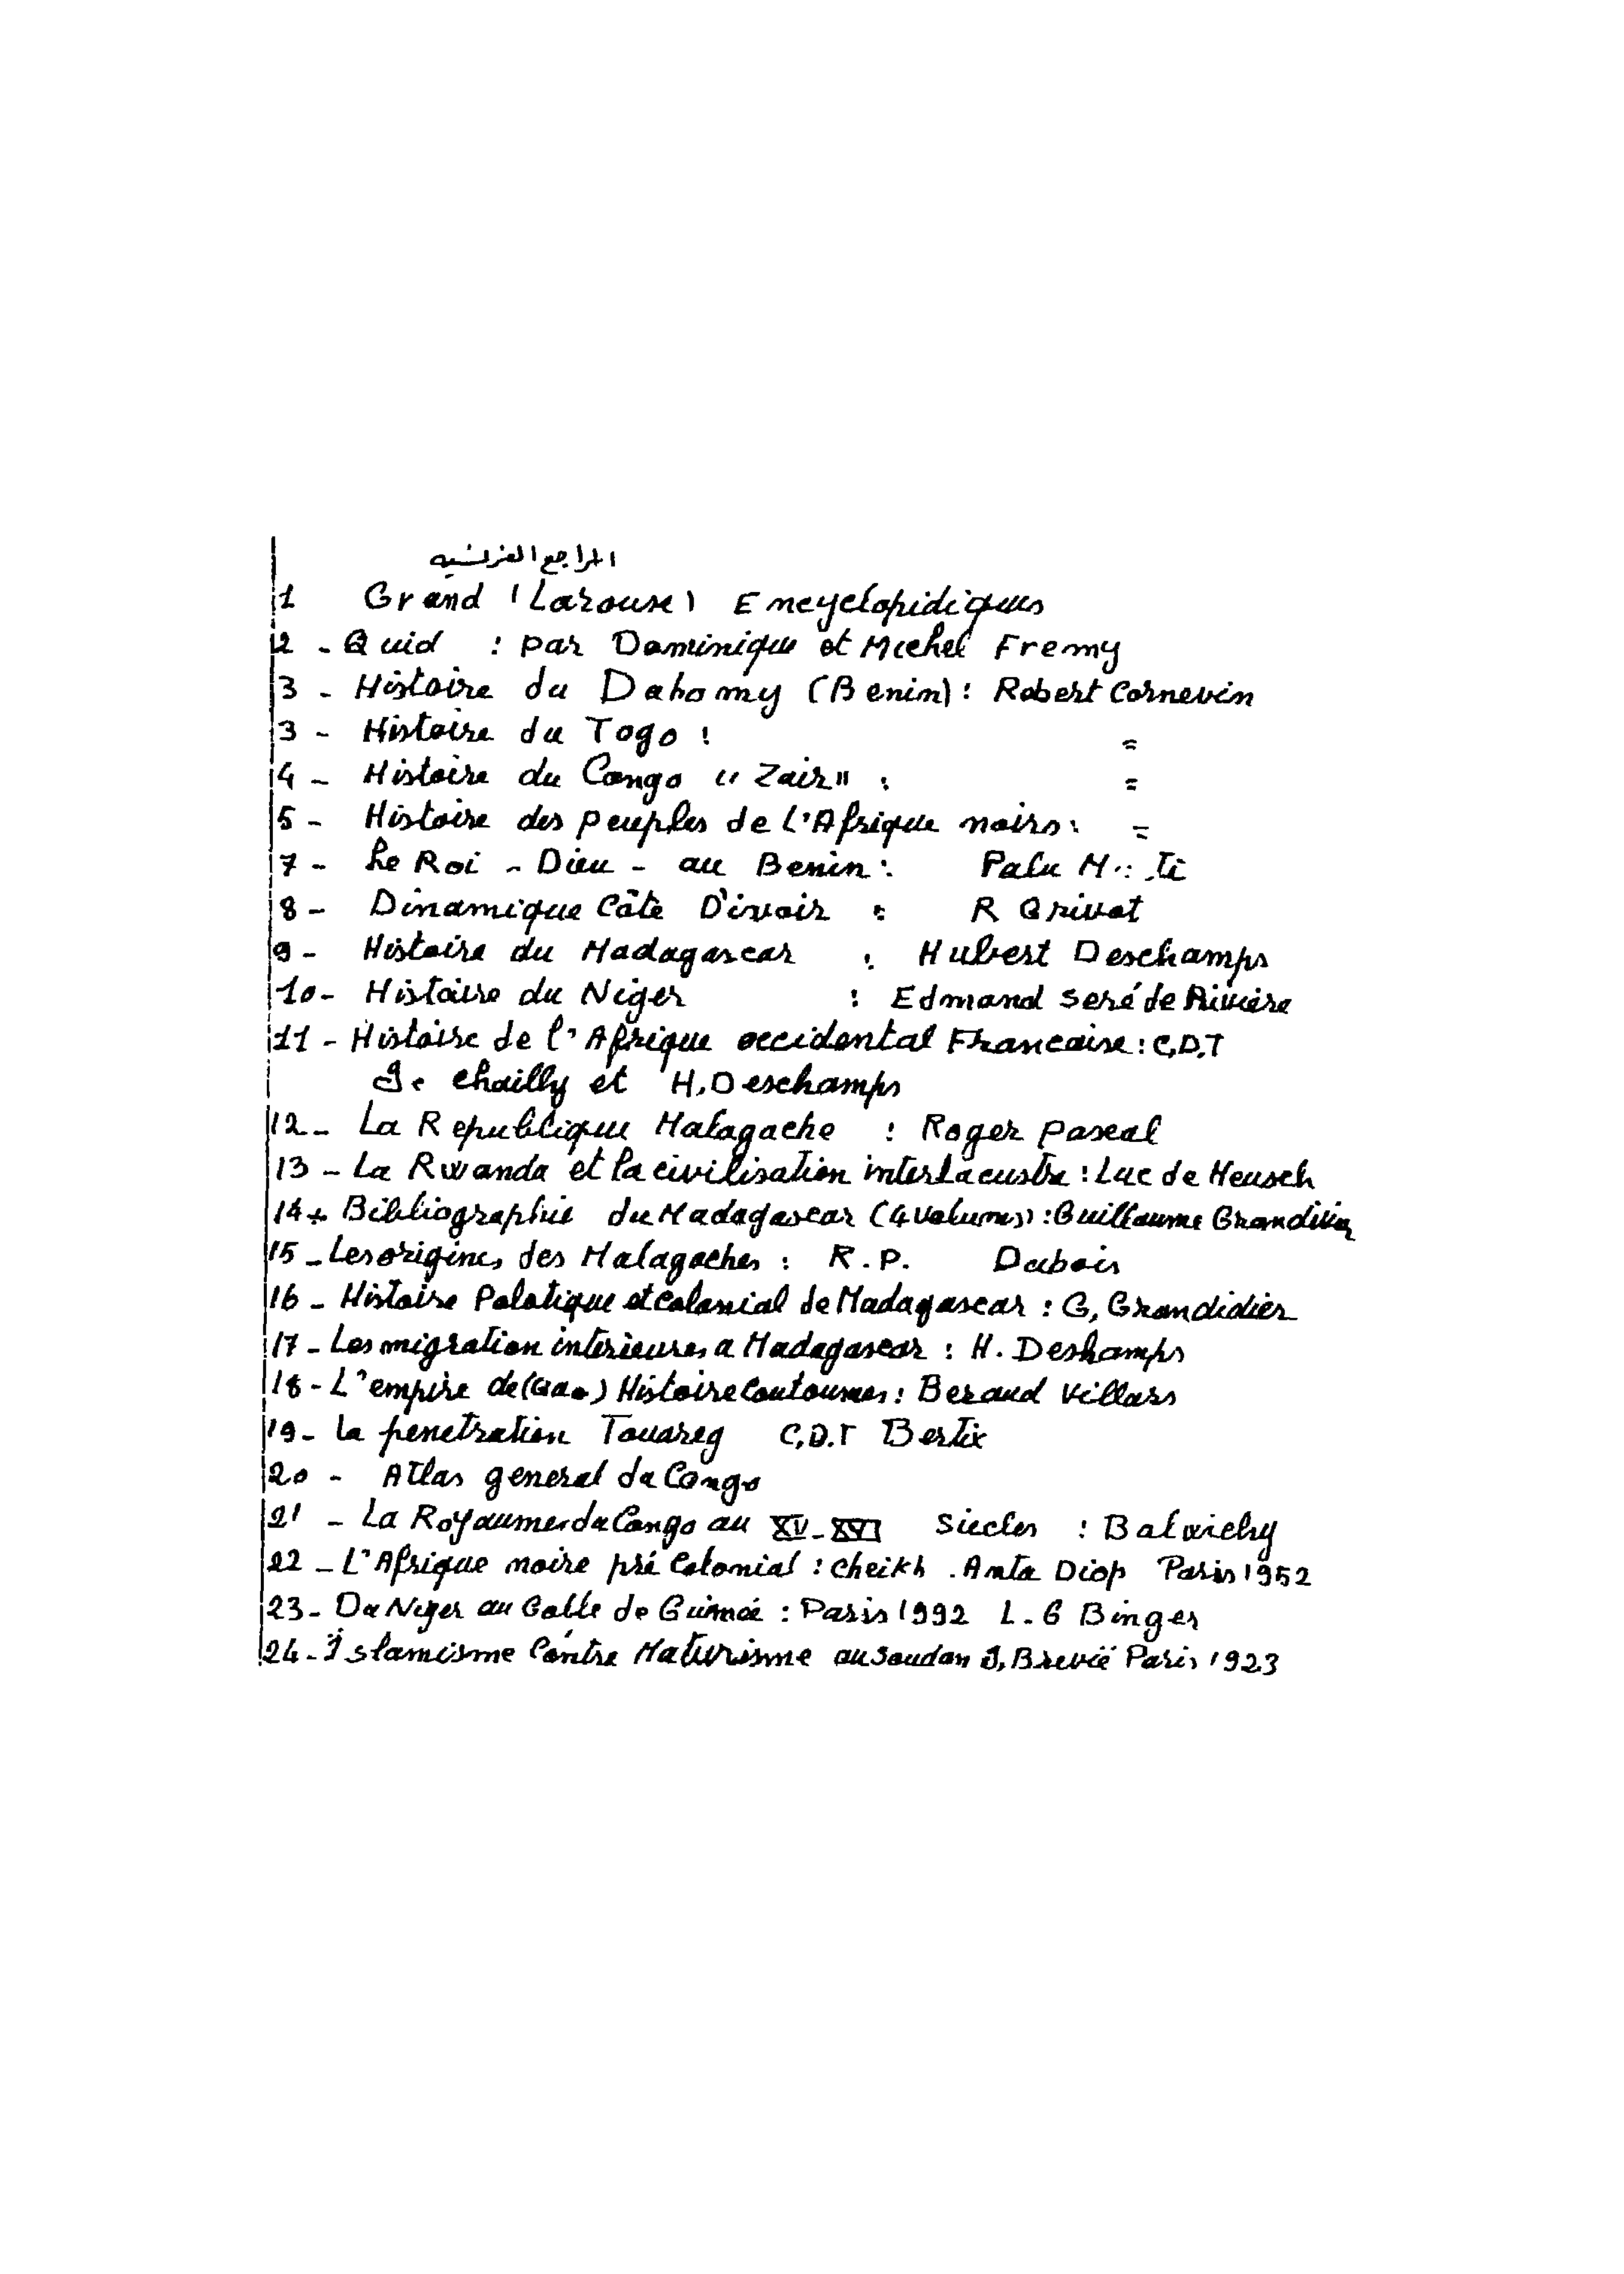 المراجع الفرنسيه
1 Grand (Larouse) Encyclopidiques
2 - Quid : par Dominique et Michel Fremy
3 - Histoire du Dahomy (Benin) : Robert Cornevin
3 - Histoire du Togo : =
4 - Histoire du Congo "Zair" : =
5 - Histoire des peuples de L'Afrique noirs : =
7 - Le Roi - Dieu - au Benin : Palu
8 - Dinamique Côte D'ivoir : R Grivot
9 - Histoire du Madagascar : Hubert Deschamps
10 - Histoire du Niger : Edmand Seré de Riviére
11 - Histoire de l'Afrique occidental Francaise : C,D,T
J. Chailly et H. Deschamps
12 - La Republique Malagache : Roger Pascal
13 - La Rwanda et la civilisation interlacustre : Luc de Heusch
14 - Bibliographie du Madagascar (4 volumes) : Guillaume
15 - Les origines des Malagaches : R.P. Dubois
16 - Histoire Polotique et colonial de Madagascar : G, Grandidier
17 - Les migration interieures a Madagascar : H. Deshamps
18 - L'empire de (Gao) Histoire Coutoumes : Beraud Villars
19 - La penetration Touareg C,D.T Bertix
20 - Atlas general du Congo
21 - La Royaumes du Congo au XV - XVI Siecles : Balwichy
22 - L'Afrique noire pré Colonial : Cheikh . Anta Diop Paris 1952
23 - Du Niger au Golle de Guineé : Paris 1992 L - G Binger
24 - Islamisme Contre Naturisme au Soudan J, Brevié Paris 1923